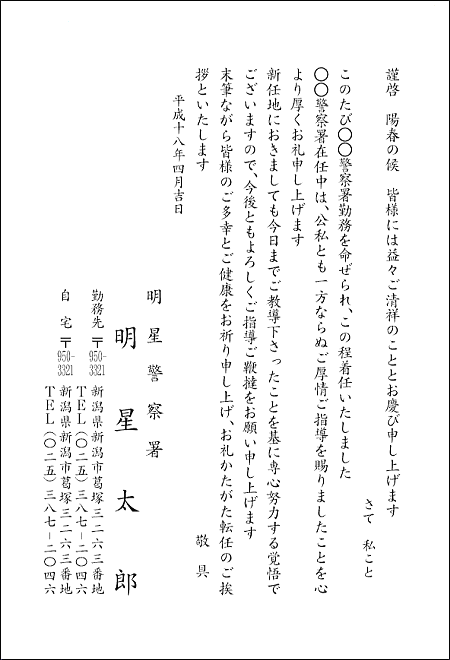 謹啓　陽春の候　皆様には益々ご清祥のこととお慶び申し上げます
さて　私こと
このたび〇〇警察署勤務を命ぜられ、この程着任いたしました
〇〇警察署在任中は、公私とも一方ならぬご厚情ご指導を賜りましたことを心
より厚くお礼申し上げます
新任地におきましても今日までご教導下さったことを基に専心努力する覚悟で
ございますので、今後ともよろしくご指導ご鞭撻をお願い申し上げます
末筆ながら皆様のご多幸とご健康をお祈り申し上げ、お礼かたがた転任のご挨
拶といたします
敬具
平成十八年四月吉日
明星警察署
明星太郎
勤務先　〒950-3321　新潟県新潟市葛塚三二六三番地
ＴＥＬ（〇二五）三八七－二〇四六
自宅　〒950-3321　新潟県新潟市葛塚三二六三番地
ＴＥＬ（〇二五）三八七－二〇四六